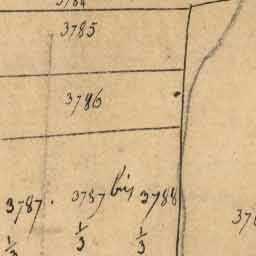 3784
3785
3786
3787. 3787 bis 3788
1/3 1/3 1/3